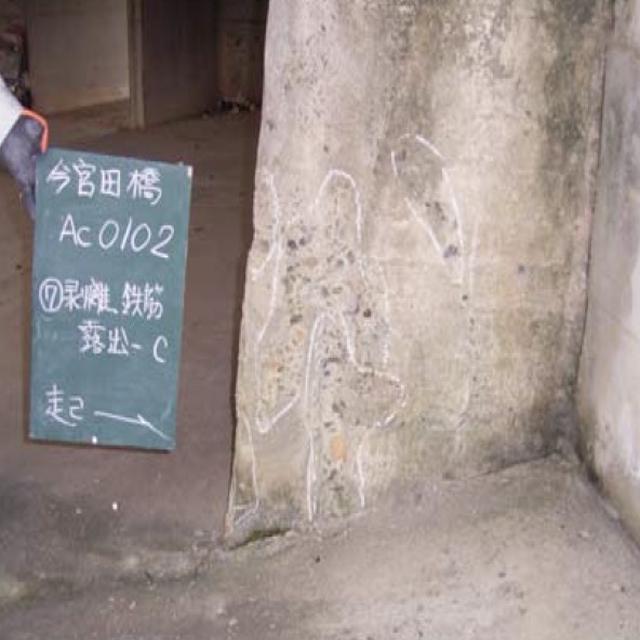 今宮田橋
Ac0102
⑦剥離、鉄筋
露出-C
起点→